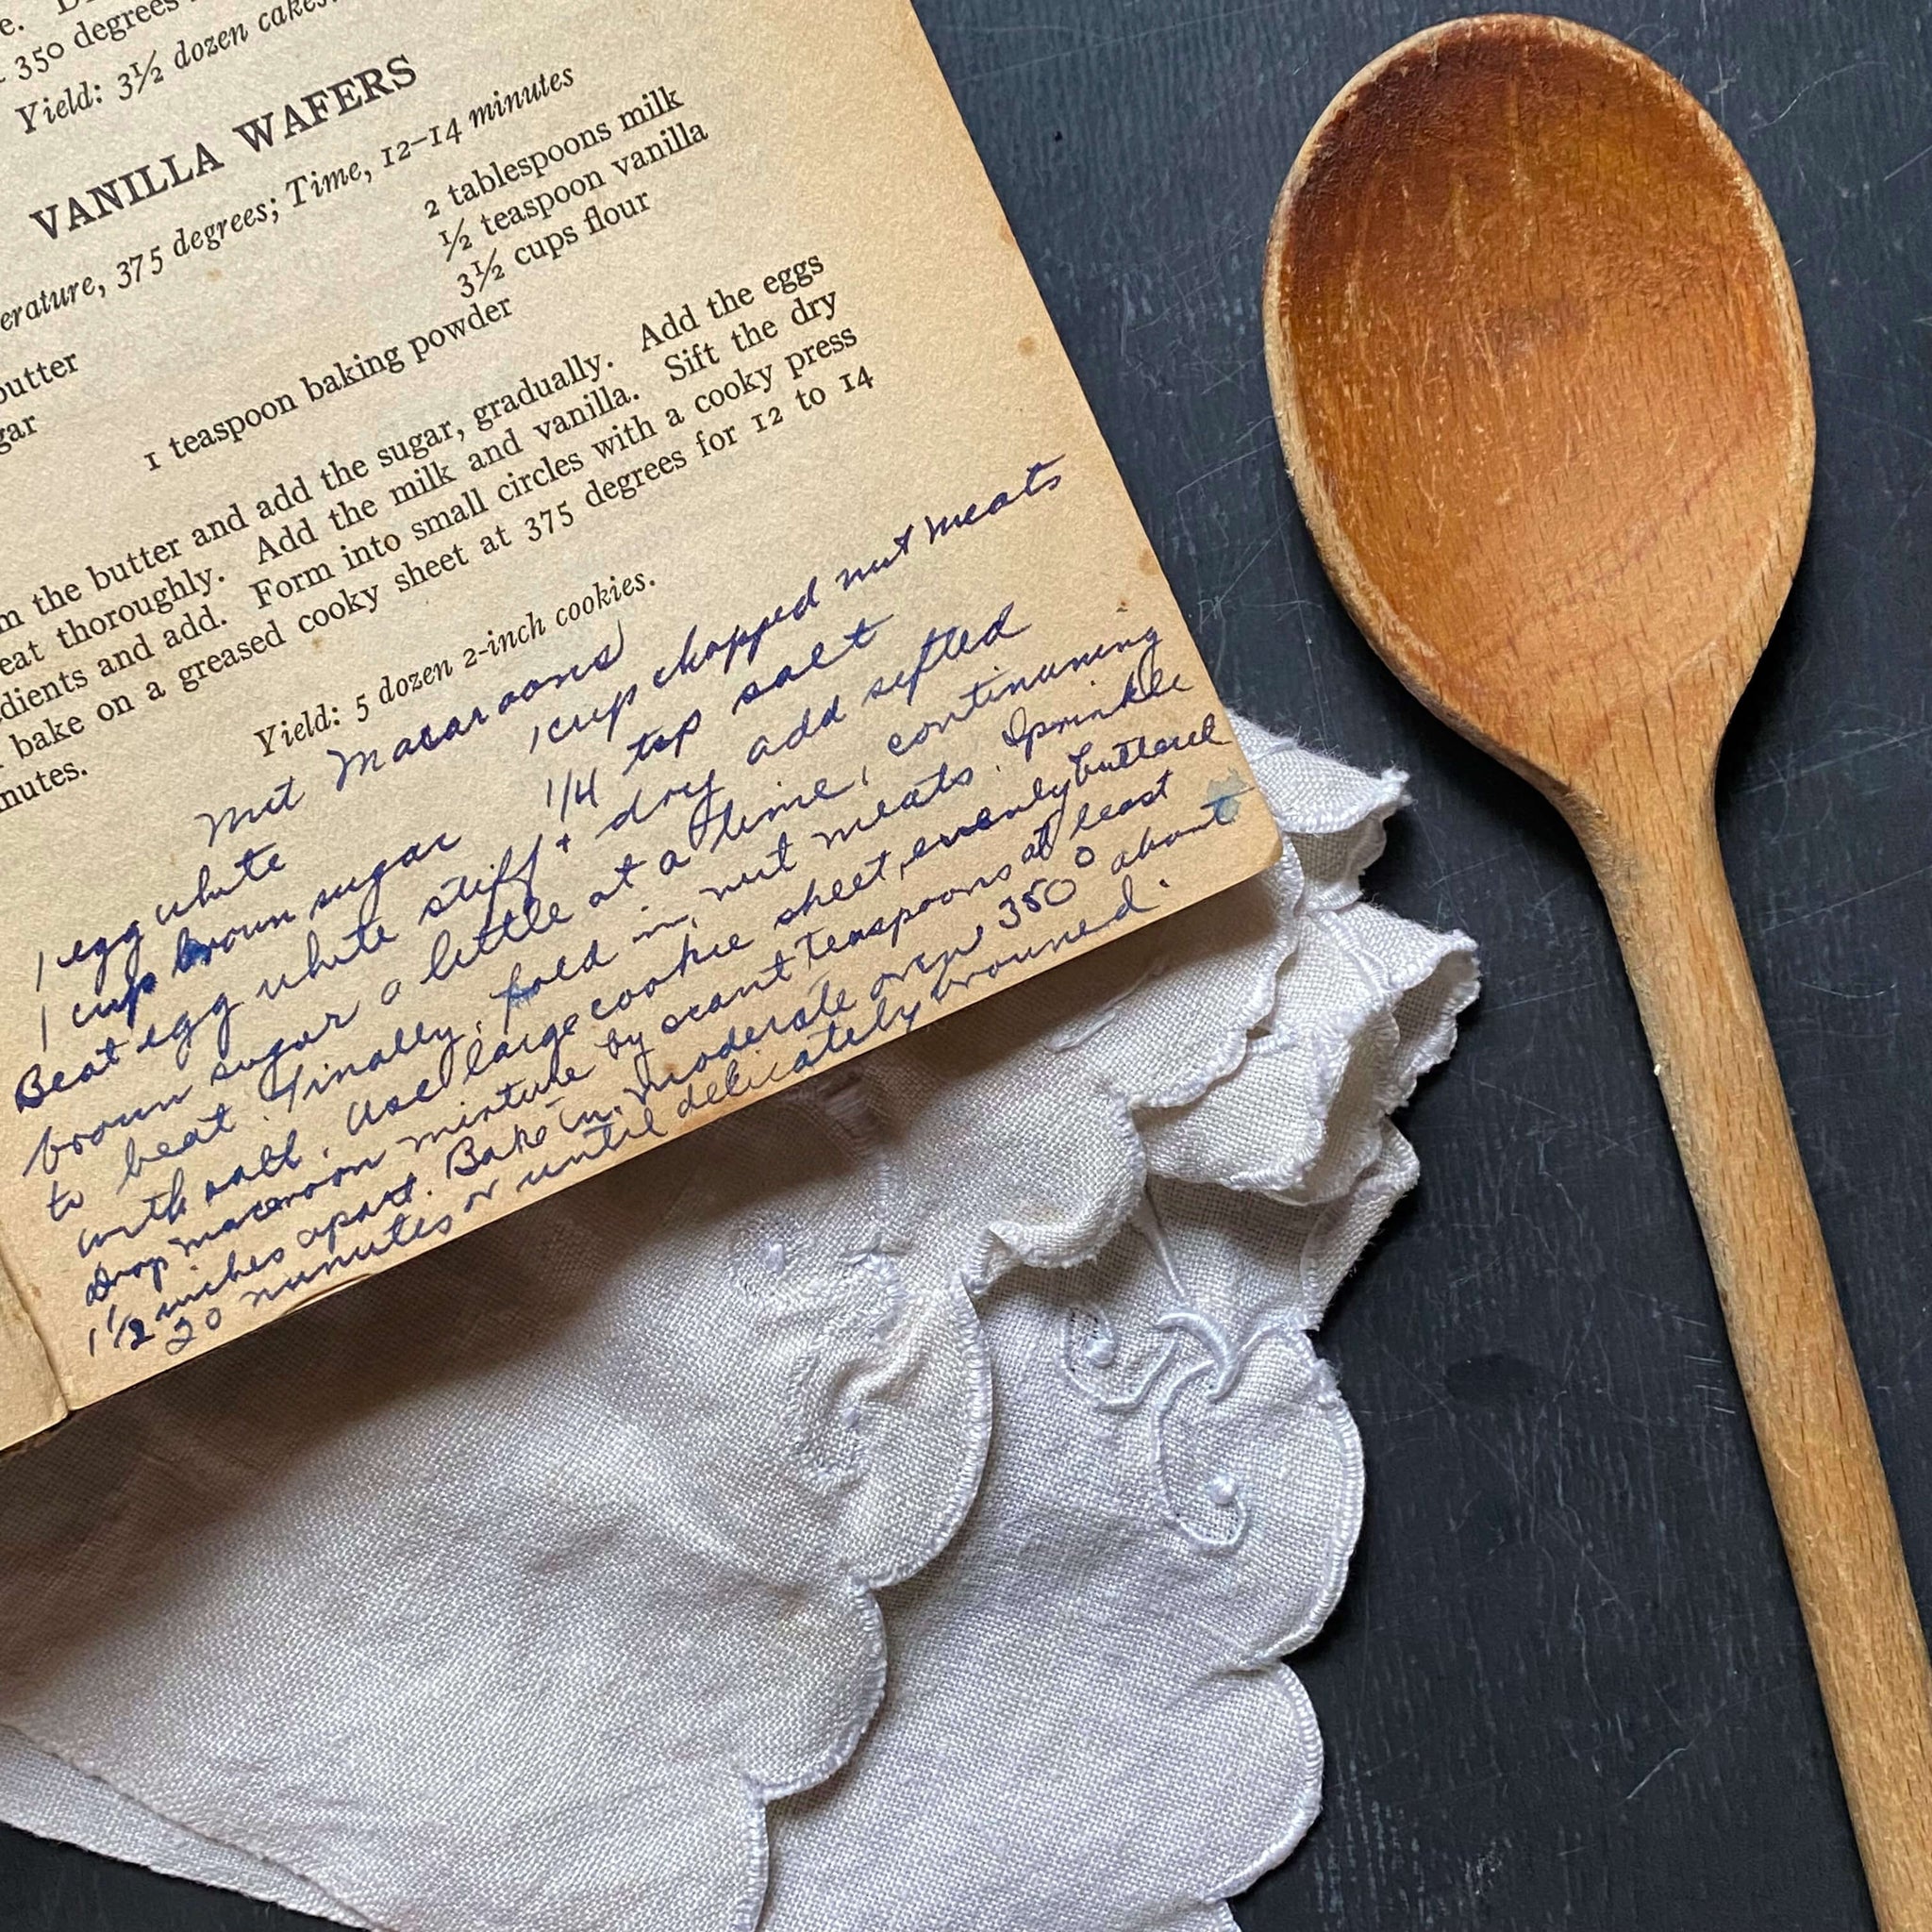 350 degrees
Yield: 3½ dozen cakes.
VANILLA WAFERS
erature, 375 degrees; Time, 12–14 minutes
2 tablespoons milk
½ teaspoon vanilla
3½ cups flour
butter
gar
1 teaspoon baking powder
m the butter and add the sugar, gradually. Add the eggs
eat thoroughly. Add the milk and vanilla. Sift the dry
dients and add. Form into small circles with a cooky press
bake on a greased cooky sheet at 375 degrees for 12 to 14
nutes.
Yield: 5 dozen 2-inch cookies.
Nut Macaroons
1 egg white 1 cup chopped nut meats
1 cup brown sugar 1/4 tsp salt
Beat egg white stiff + dry add sifted
brown sugar a little at a time, continuning
to beat. Finally, fold in, nut meats. Sprinkle
with salt. Use large cookie sheet, evenly buttered
Drop macaroon mixture by scant teaspoons at least
1 1/2 inches apart. Bake in moderate oven 350° about
20 minutes or until delicately browned.